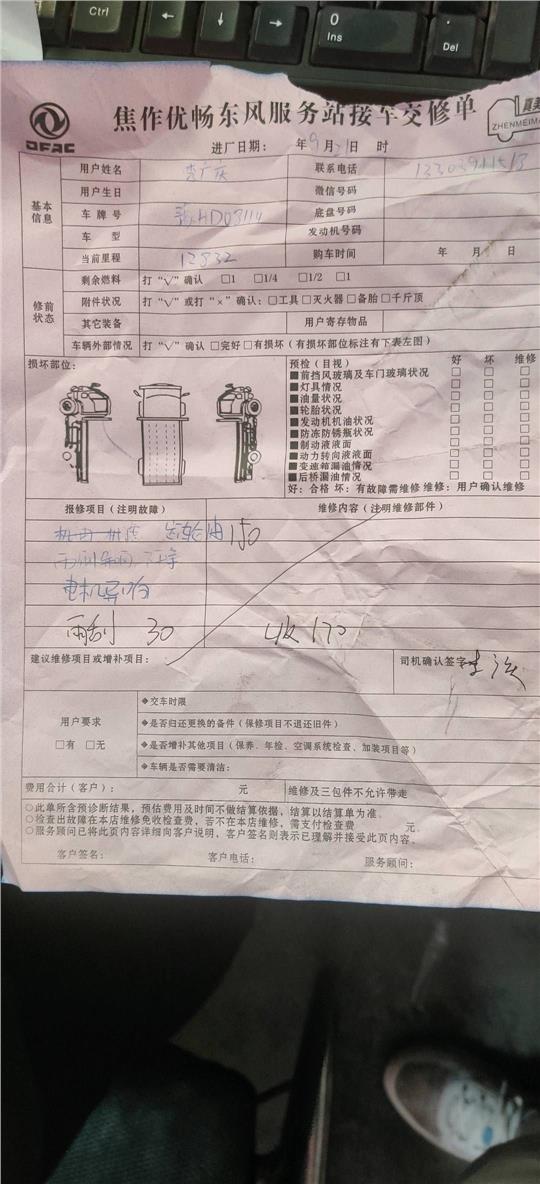 Ctrl
0
Ins
Del
焦作优畅东风服务站接车交修单
DFAC
ZHENMEIMA
进厂日期： 年9月21日 时
基本信息
用户姓名 李广庆 联系电话
用户生日 微信号码
车牌号 底盘号码
车型 发动机号码
当前里程 12832 购车时间 年 月 日
修前状态
剩余燃料 打“√”确认 □1 □1/4 □1/2 □1
附件状况 打“√”或打“×”确认：□工具□灭火器□备胎□千斤顶
其它装备 用户寄存物品
车辆外部情况 打“√”确认□完好□有损坏（有损坏部位标注有下表左图）
损坏部位：
预检（目视） 好 坏 维修
■前挡风玻璃及车门玻璃状况 □ □ □
■灯具情况 □ □ □
■油量状况 □ □ □
■轮胎状况 □ □ □
■发动机机油状况 □ □ □
■防冻防锈瓶状况 □ □ □
■制动液液面 □ □ □
■动力转向液液面 □ □ □
■变速箱漏油情况 □ □ □
■后桥漏油情况 □ □ □
好：合格 坏：有故障需维修 维修：用户确认维修
报修项目（注明故障） 维修内容（注明维修部件）
齿轮油 150
电机异响
雨刮 30 收170
建议维修项目或增补项目： 司机确认签字
用户要求
□有 □无
◆交车时限
◆是否归还更换的备件（保修项目不退还旧件）
◆是否增补其他项目（保养、年检、空调系统检查、加装项目等）
◆车辆是否需要清洁：
费用合计（客户）： 元 维修及三包件不允许带走
○此单所含预诊断结果，预估费用及时间不做结算依据，结算以结算单为准。
○检查出故障在本店维修免收检查费，若不在本店维修，需支付检查费 元。
○服务顾问已将此页内容详细向客户说明，客户签名则表示已理解并接受此页内容。
客户签名： 客户电话： 服务顾问：